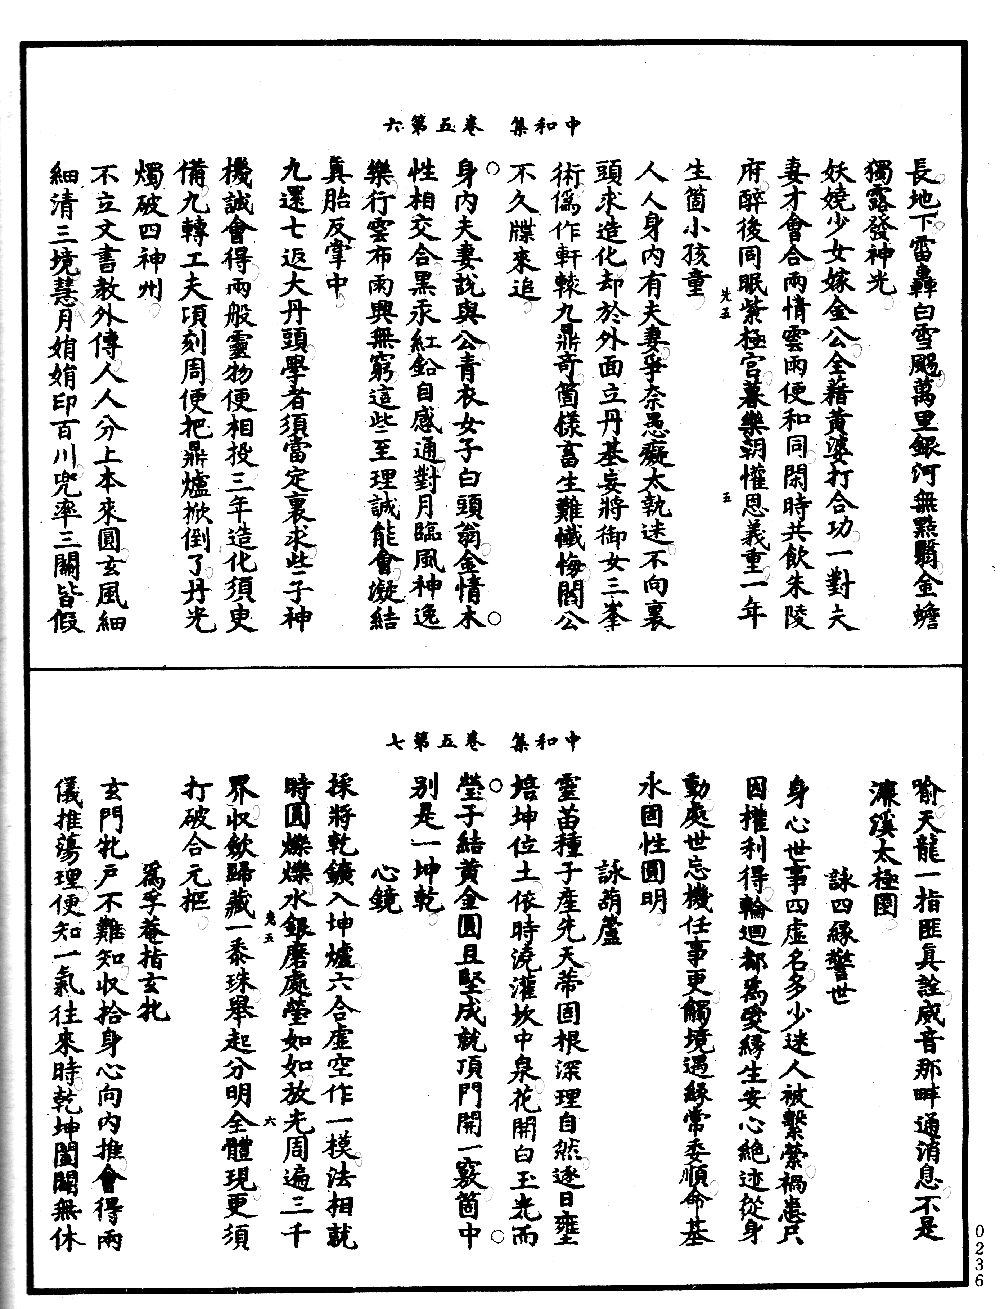 中和集　卷五第六
長地下雷轟白雪飈萬里銀河無點翳金蟾
獨露發神光
妖嬈少女嫁金公全藉黃婆打合功一對夫
妻才會合兩情雲雨便和同閑時共飲朱陵
府醉後同眠紫極宮暮樂朝懽恩義重一年
生箇小孩童
人人身內有夫妻爭奈愚癡太執迷不向裏
頭求造化却於外面立丹基妄將御女三峯
術僞作軒轅九鼎奇箇樣畜生難懺悔閻公
不久牒來追
身內夫妻說與公青衣女子白頭翁金情木
性相交合黑汞紅鉛自感通對月臨風神逸
樂行雲布雨興無窮這些至理誠能會凝結
真胎反掌中
九還七返大丹頭學者須當定裏求些子神
機誠會得兩般靈物便相投三年造化須臾
備九轉工夫項刻周便把鼎爐掀倒了丹光
燭破四神州
不立文書教外傳人人分上本來圓玄風細
細清三境慧月娟娟印百川兜率三關皆假
中和集　卷五第七
喻天龍一指匪真詮威音那畔通消息不是
濂溪太極圖
詠四緣警世
身心世事四虛名多少迷人被繫縈禍患只
因權利得輪迴都爲愛緣生安心絕迹從身
動處世忘機任事更觸境遇緣常委順命基
永固性圓明
詠葫蘆
靈苗種子產先天蒂固根深理自然逐日壅
培坤位土依時澆灌坎中泉花開白玉光而
瑩子結黃金圓且堅成就頂門開一竅箇中
別是一坤乾
心鏡
採將乾鑛入坤爐六合虛空作一模法相就
時圓爍爍水銀磨處瑩如如放光周遍三千
界收歛歸藏一黍珠舉起分明全體現更須
打破合元樞
爲孚菴指玄牝
玄門牝戶不難知收拾身心向內推會得兩
儀推蕩理便知一氣往來時乾坤闔闢無休
0236